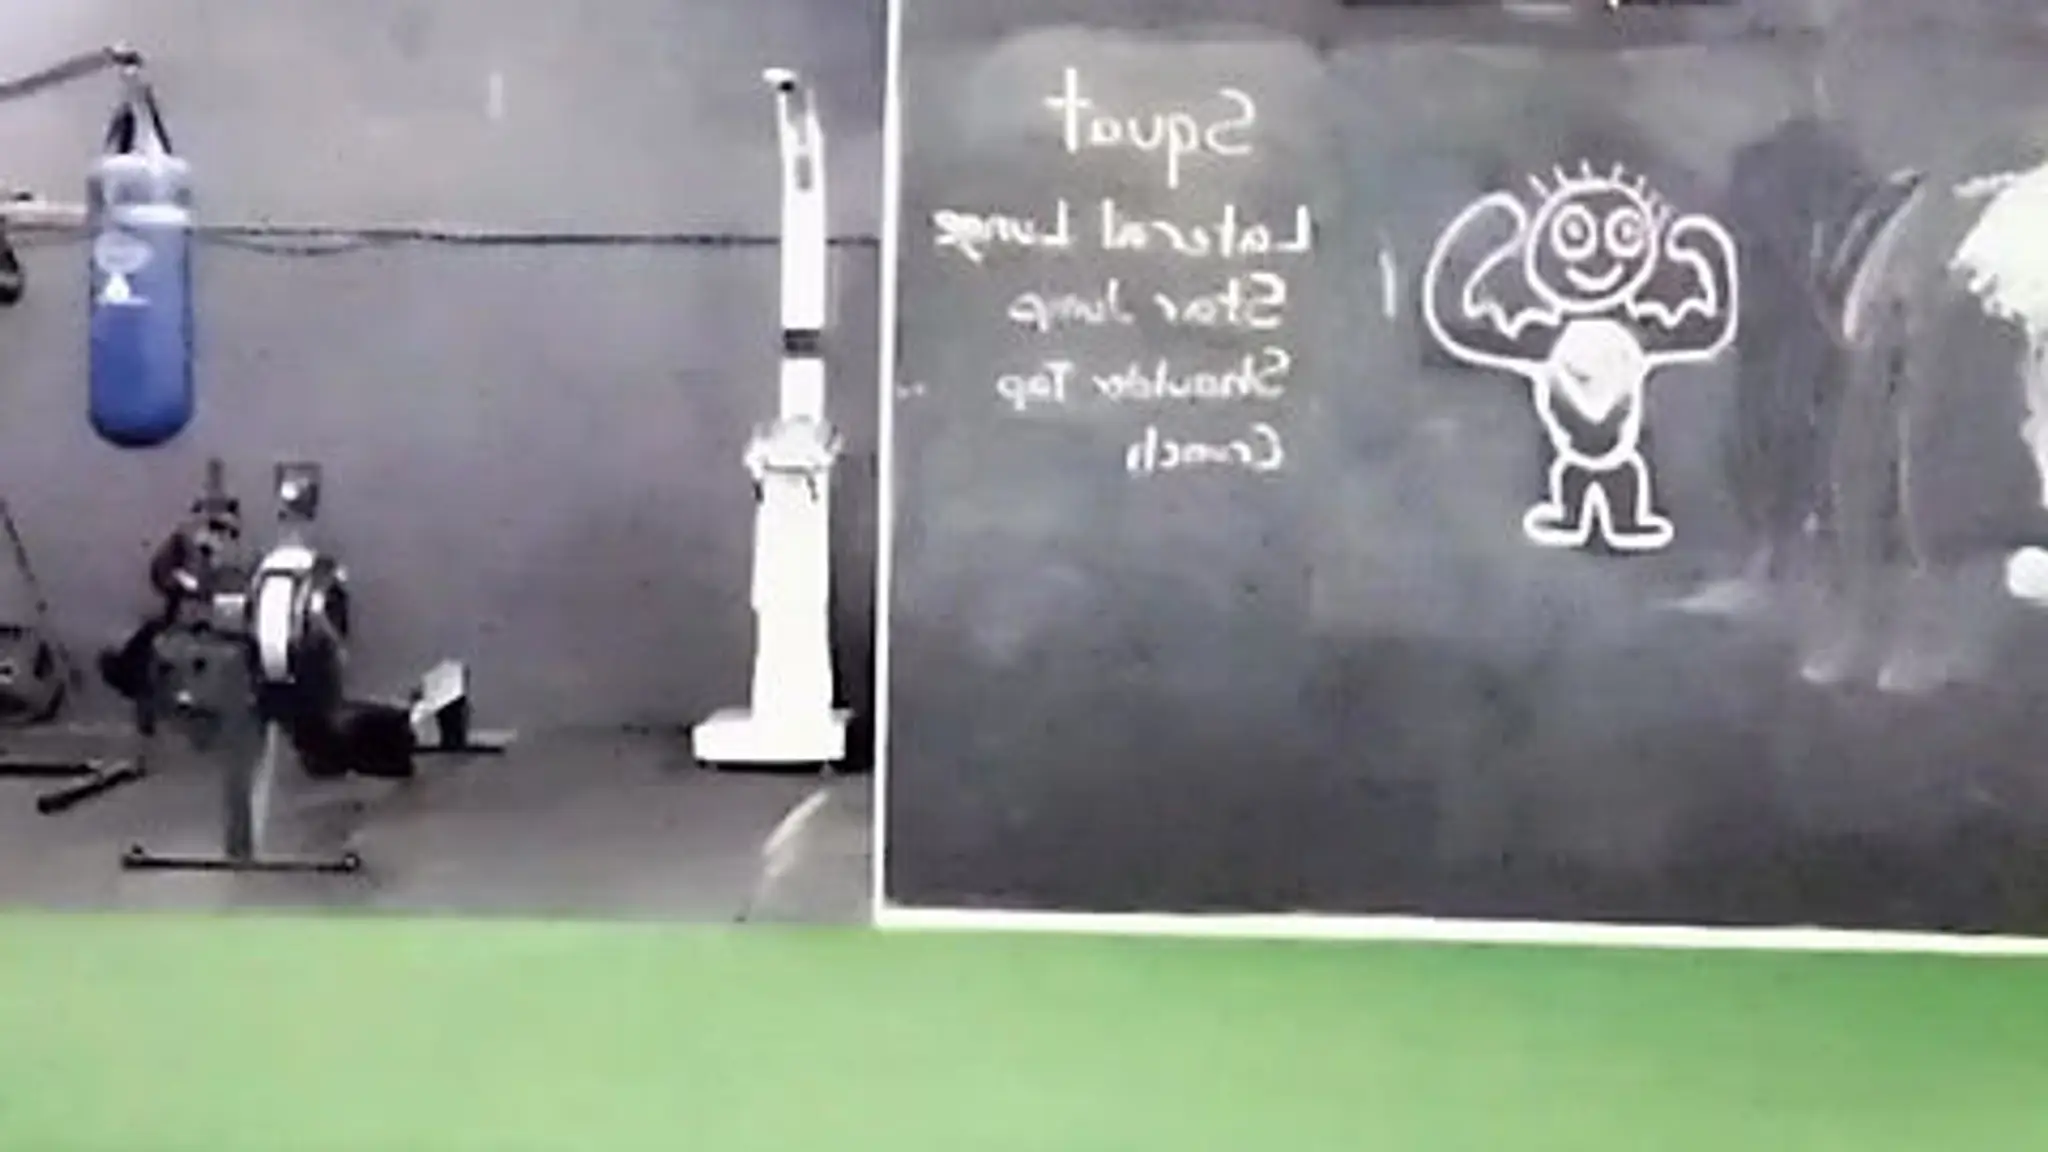 Squat
Lateral Lunge
Star Jump
Shoulder Tap
Crunch